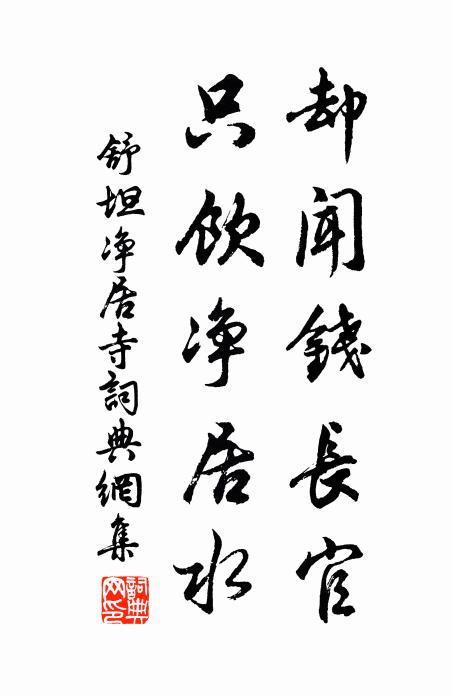 却聞錢長官
只飲净居水
舒坦净居寺詞典網集
詞典網印